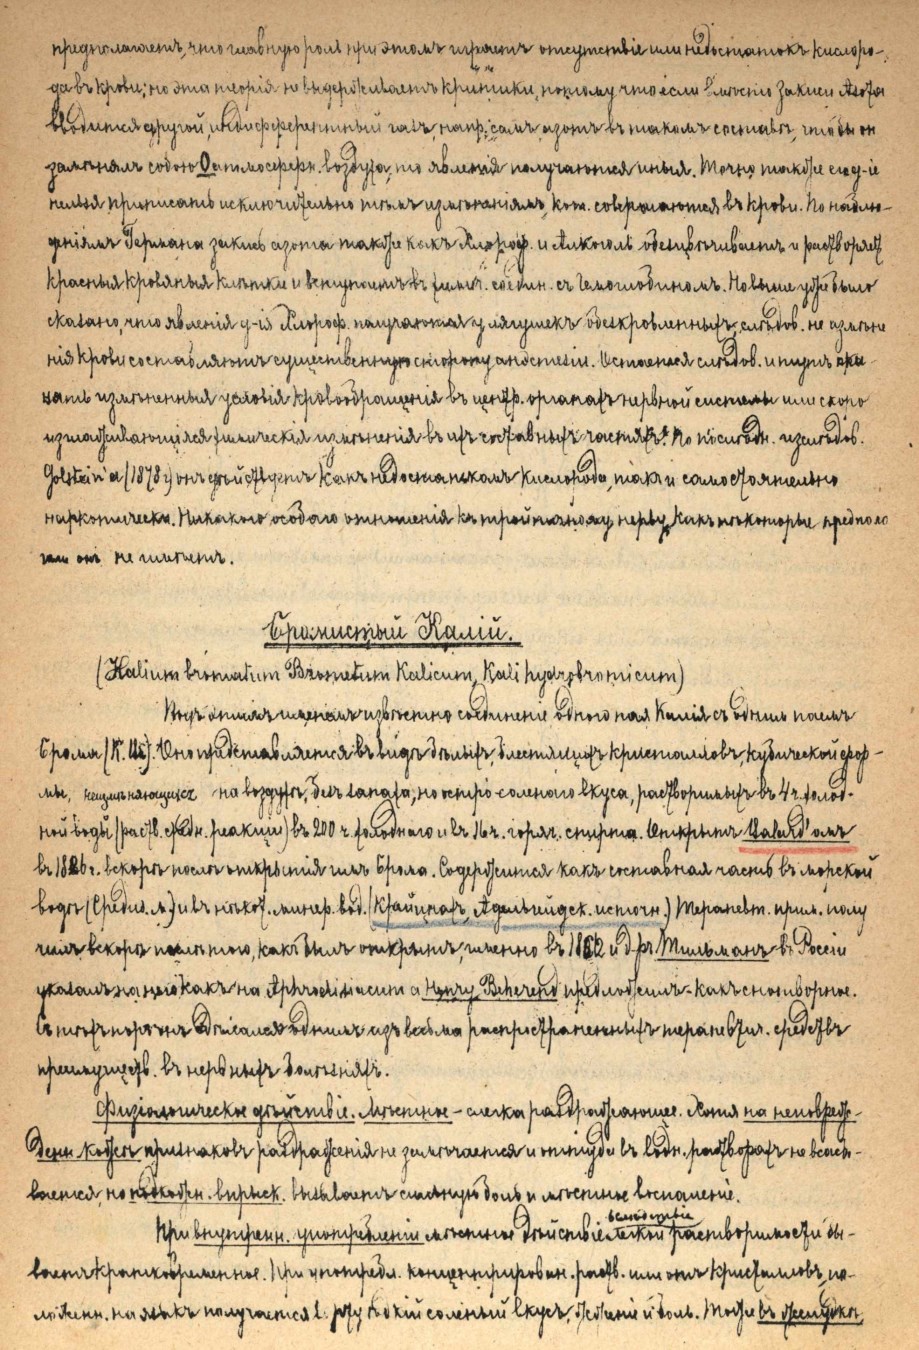 предполагаетъ, что главную роль при этомъ играетъ отсутствіе или недостатокъ кислоро-
да въ крови; но эта теорія не выдерживаетъ критики, потому что если вмѣсто закиси Азота
вводится другой, индифферентный газъ, напр. самъ азотъ въ такомъ составѣ, чтобы он
замѣнялъ собою О атмосферн. воздуха, то явленія получаются иныя. Точно также сего д-іе
нельзя приписать исключительно тѣмъ измѣненіямъ, кот. совершаются въ крови. По наблю-
деніямъ Германа закись азота также какъ Хлороф. и Алкоголь обезцвѣчиваетъ и растворяетъ
красныя кровяныя клѣтки и вступаетъ въ химич. соедин. съ Гемоглобиномъ. Но выше уже было
сказано, что явленія д-ія Хлороф. получаются у лягушекъ обезкровленныхъ, слѣдов. не измѣне
нія крови составляютъ существенную сторону анэстезіи. Остается слѣдов. и тутъ
измѣненныя условія кровообращенія въ центр. органахъ нервной системы или скоро
изглаживающіяся химическія измѣненія въ ихъ составныхъ частяхъ. По послѣдн. изслѣдов.
Golstein'a (1878 г) онъ дѣйствуетъ какъ недостаткомъ кислорода, такъ и самостоятельно
наркотически. Никакого особаго отношенія къ тройничному нерву, какъ нѣкоторые предпола
гали онъ не имѣетъ.
Бромистый Калій.
(Kalium bromatum Brometum Kalicum, Kali hydrobromicum)
Подъ этимъ именемъ извѣстно соединеніе одного пая Калія съ однимъ паемъ
Брома. Оно представляется въ видѣ бѣлыхъ, блестящихъ кристалловъ, кубической фор-
мы, неизмѣняющихся на воздухѣ, безъ запаха, но остро-соленаго вкуса, растворимыхъ въ 4 ч. холод-
ной воды (раств. средн. реакціи) въ 200 ч. холоднаго и въ 16 ч. горяч. спирта. Открытъ Balard'омъ
въ 1826 г. вскорѣ послѣ открытія имъ Брома. Содержится какъ составная часть въ морской
водѣ (Средиз. м.) и въ нѣкот. минер. вод. (Крайцнахъ, Адельгейдск. источн.) Терапевт. прим. полу
чилъ вскорѣ послѣ того, какъ былъ открытъ, именно въ и д-ръ Тильманъ въ Россіи
указалъ на него какъ на Aphrodisiacum а Henry Beherend предложилъ - какъ снотворное.
Съ тѣхъ поръ онъ сдѣлался однимъ изъ весьма распространенныхъ терапевтич. средствъ
преимуществ. въ нервныхъ болѣзняхъ.
Физіологическое дѣйствіе. Мѣстное - слегка раздражающее. Хотя на неповреж-
денн. кожѣ признаковъ раздраженія не замѣчается и оттуда въ водн. растворахъ не всасы-
вается, но подкожн. впрыск. вызываетъ сильную боль и мѣстное воспаленіе.
При внутренн. употребленіи мѣстное дѣйствіе вслѣдствіе легкой растворимости бы-
ваетъ кратковременное. При употребл. концентрирован. раств. или отъ кристалловъ, по-
ложенн. на языкъ получается рѣзкій соленый вкусъ, жженіе и боль. Тоже въ желудкѣ,